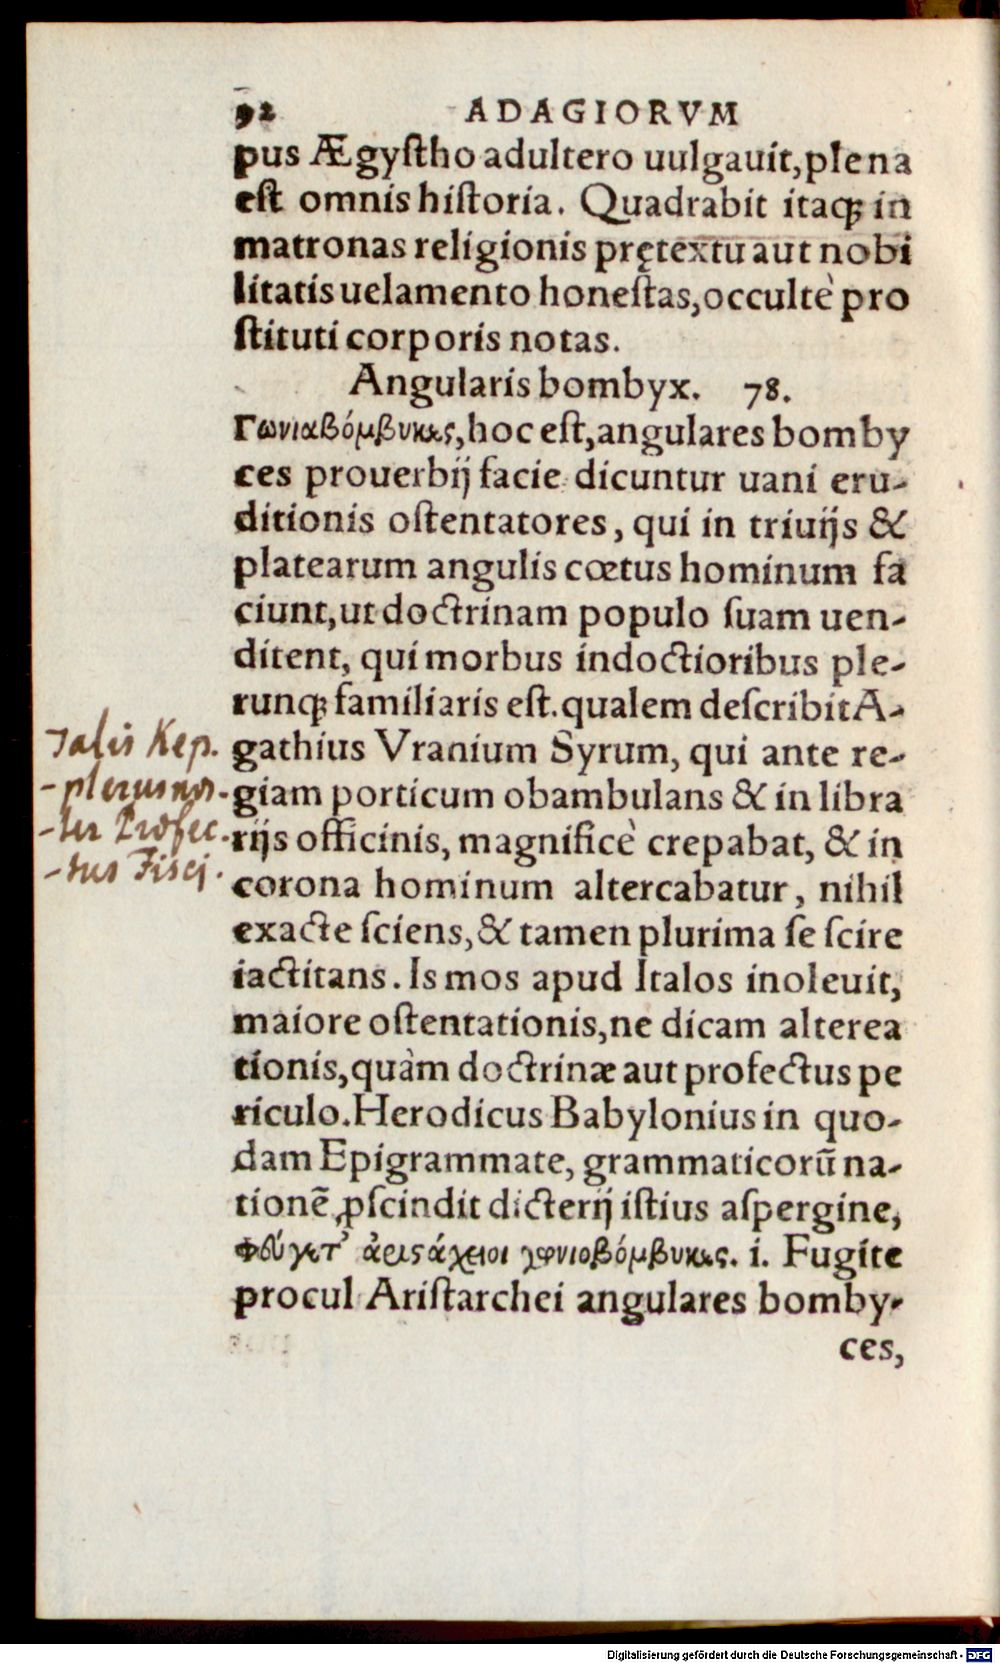 92 ADAGIORVM
pus Ægyſtho adultero uulgauit, plena
eſt omnis hiſtoria. Quadrabit itaqꝫ in
matronas religionis prętextu aut nobi
litatis uelamento honeſtas, occultè pro
ſtituti corporis notas.
Angularis bombyx. 78.
Γωνιαβόμβυκες, hoc eſt, angulares bomby
ces prouerbij facie dicuntur uani eru-
ditionis oſtentatores, qui in triuijs &
platearum angulis cœtus hominum fa
ciunt, ut doctrinam populo ſuam uen-
ditent, qui morbus indoctioribus ple-
runqꝫ familiaris eſt. qualem deſcribit A-
gathius Vranium Syrum, qui ante re-
giam porticum obambulans & in libra
rijs officinis, magnificè crepabat, & in
corona hominum altercabatur, nihil
exacte ſciens, & tamen plurima ſe ſcire
iactitans. Is mos apud Italos inoleuit,
maiore oſtentationis, ne dicam alterea
tionis, quàm doctrinæ aut profectus pe
riculo. Herodicus Babylonius in quo-
dam Epigrammate, grammaticorū na-
tionē ꝓſcindit dicterij iſtius aſpergine,
Φεύγετ' ἀριστάχειοι γωνιοβόμβυκες. i. Fugite
procul Ariſtarchei angulares bomby-
ces,
Talis Kep.
-plerus nos-
-ter Profec-
-tus Fisci.
Digitalisierung gefördert durch die Deutsche Forschungsgemeinschaft - DFG